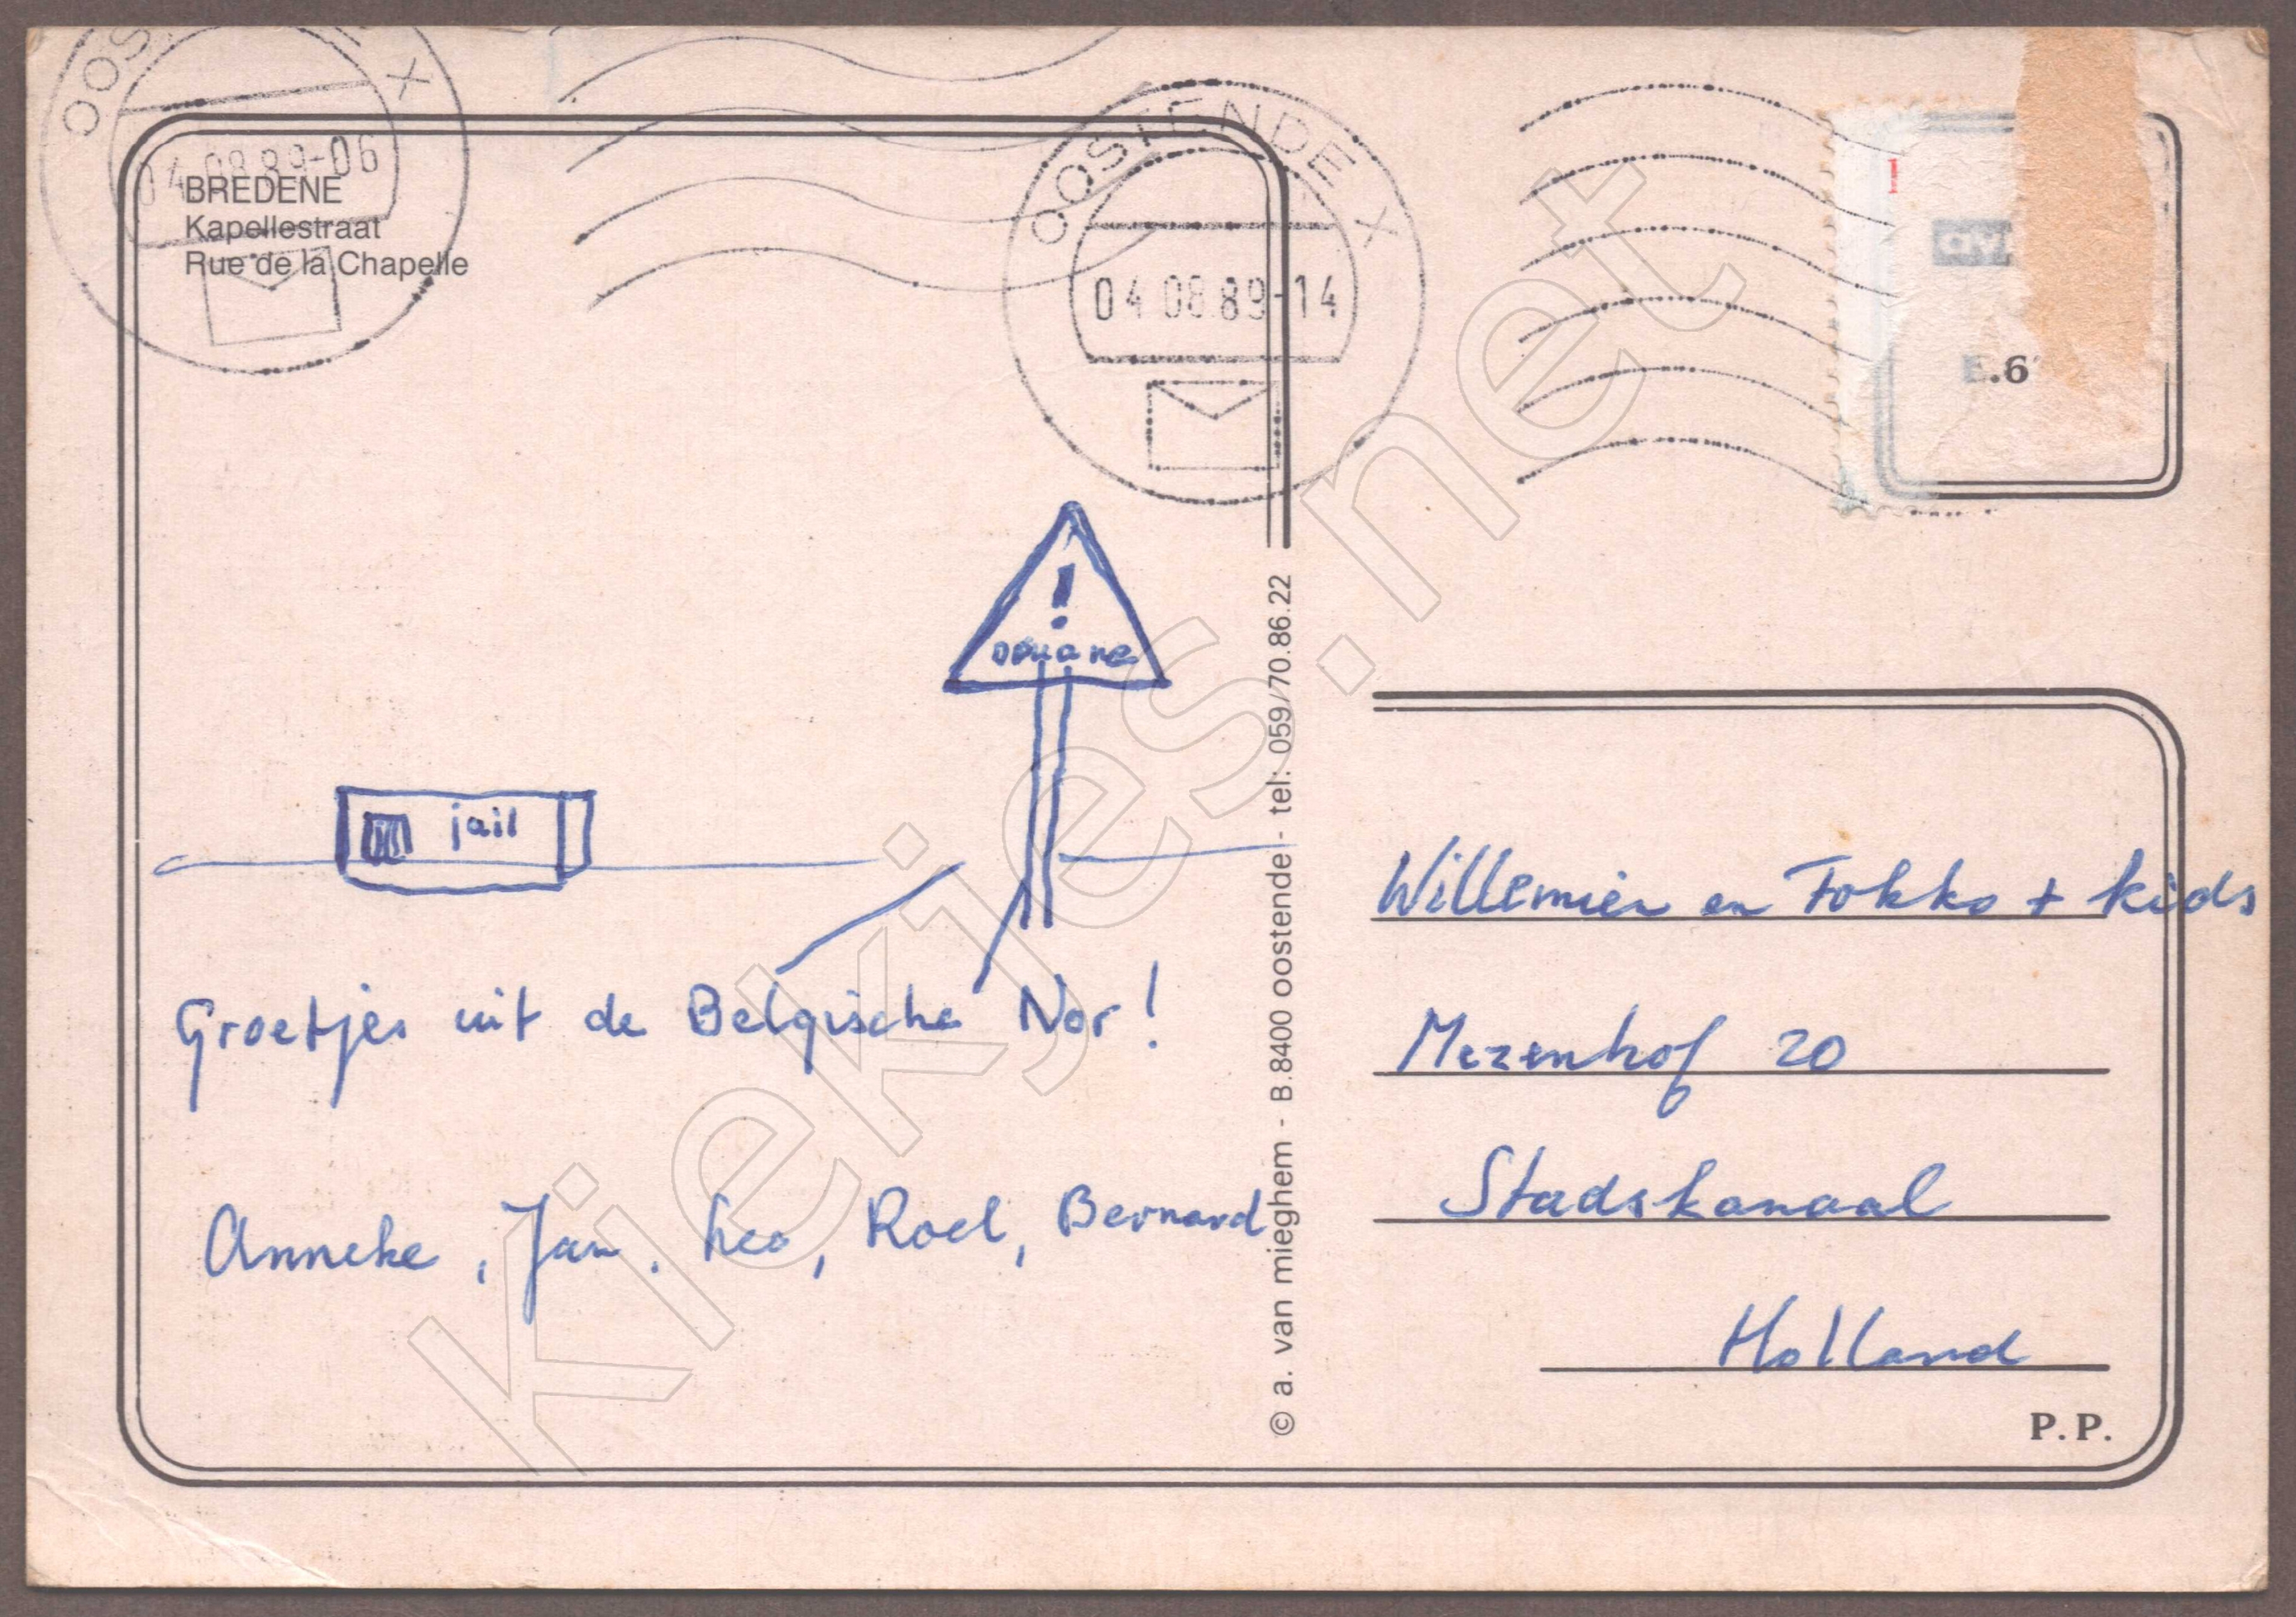 OOSTENDE X
04 08 89-06
04 08 89-14
BREDENE
Kapellestraat
Rue de la Chapelle
E.6
! douane
jail
Groetjes uit de Belgische Nor!
Anneke, Jan, Leo, Roel, Bernard
© a. van mieghem - B.8400 oostende - tel: 059/70.86.22
Willemien en Fokko + kids
Mezenhof 20
Stadskanaal
Holland
P.P.
Kiekjes.net